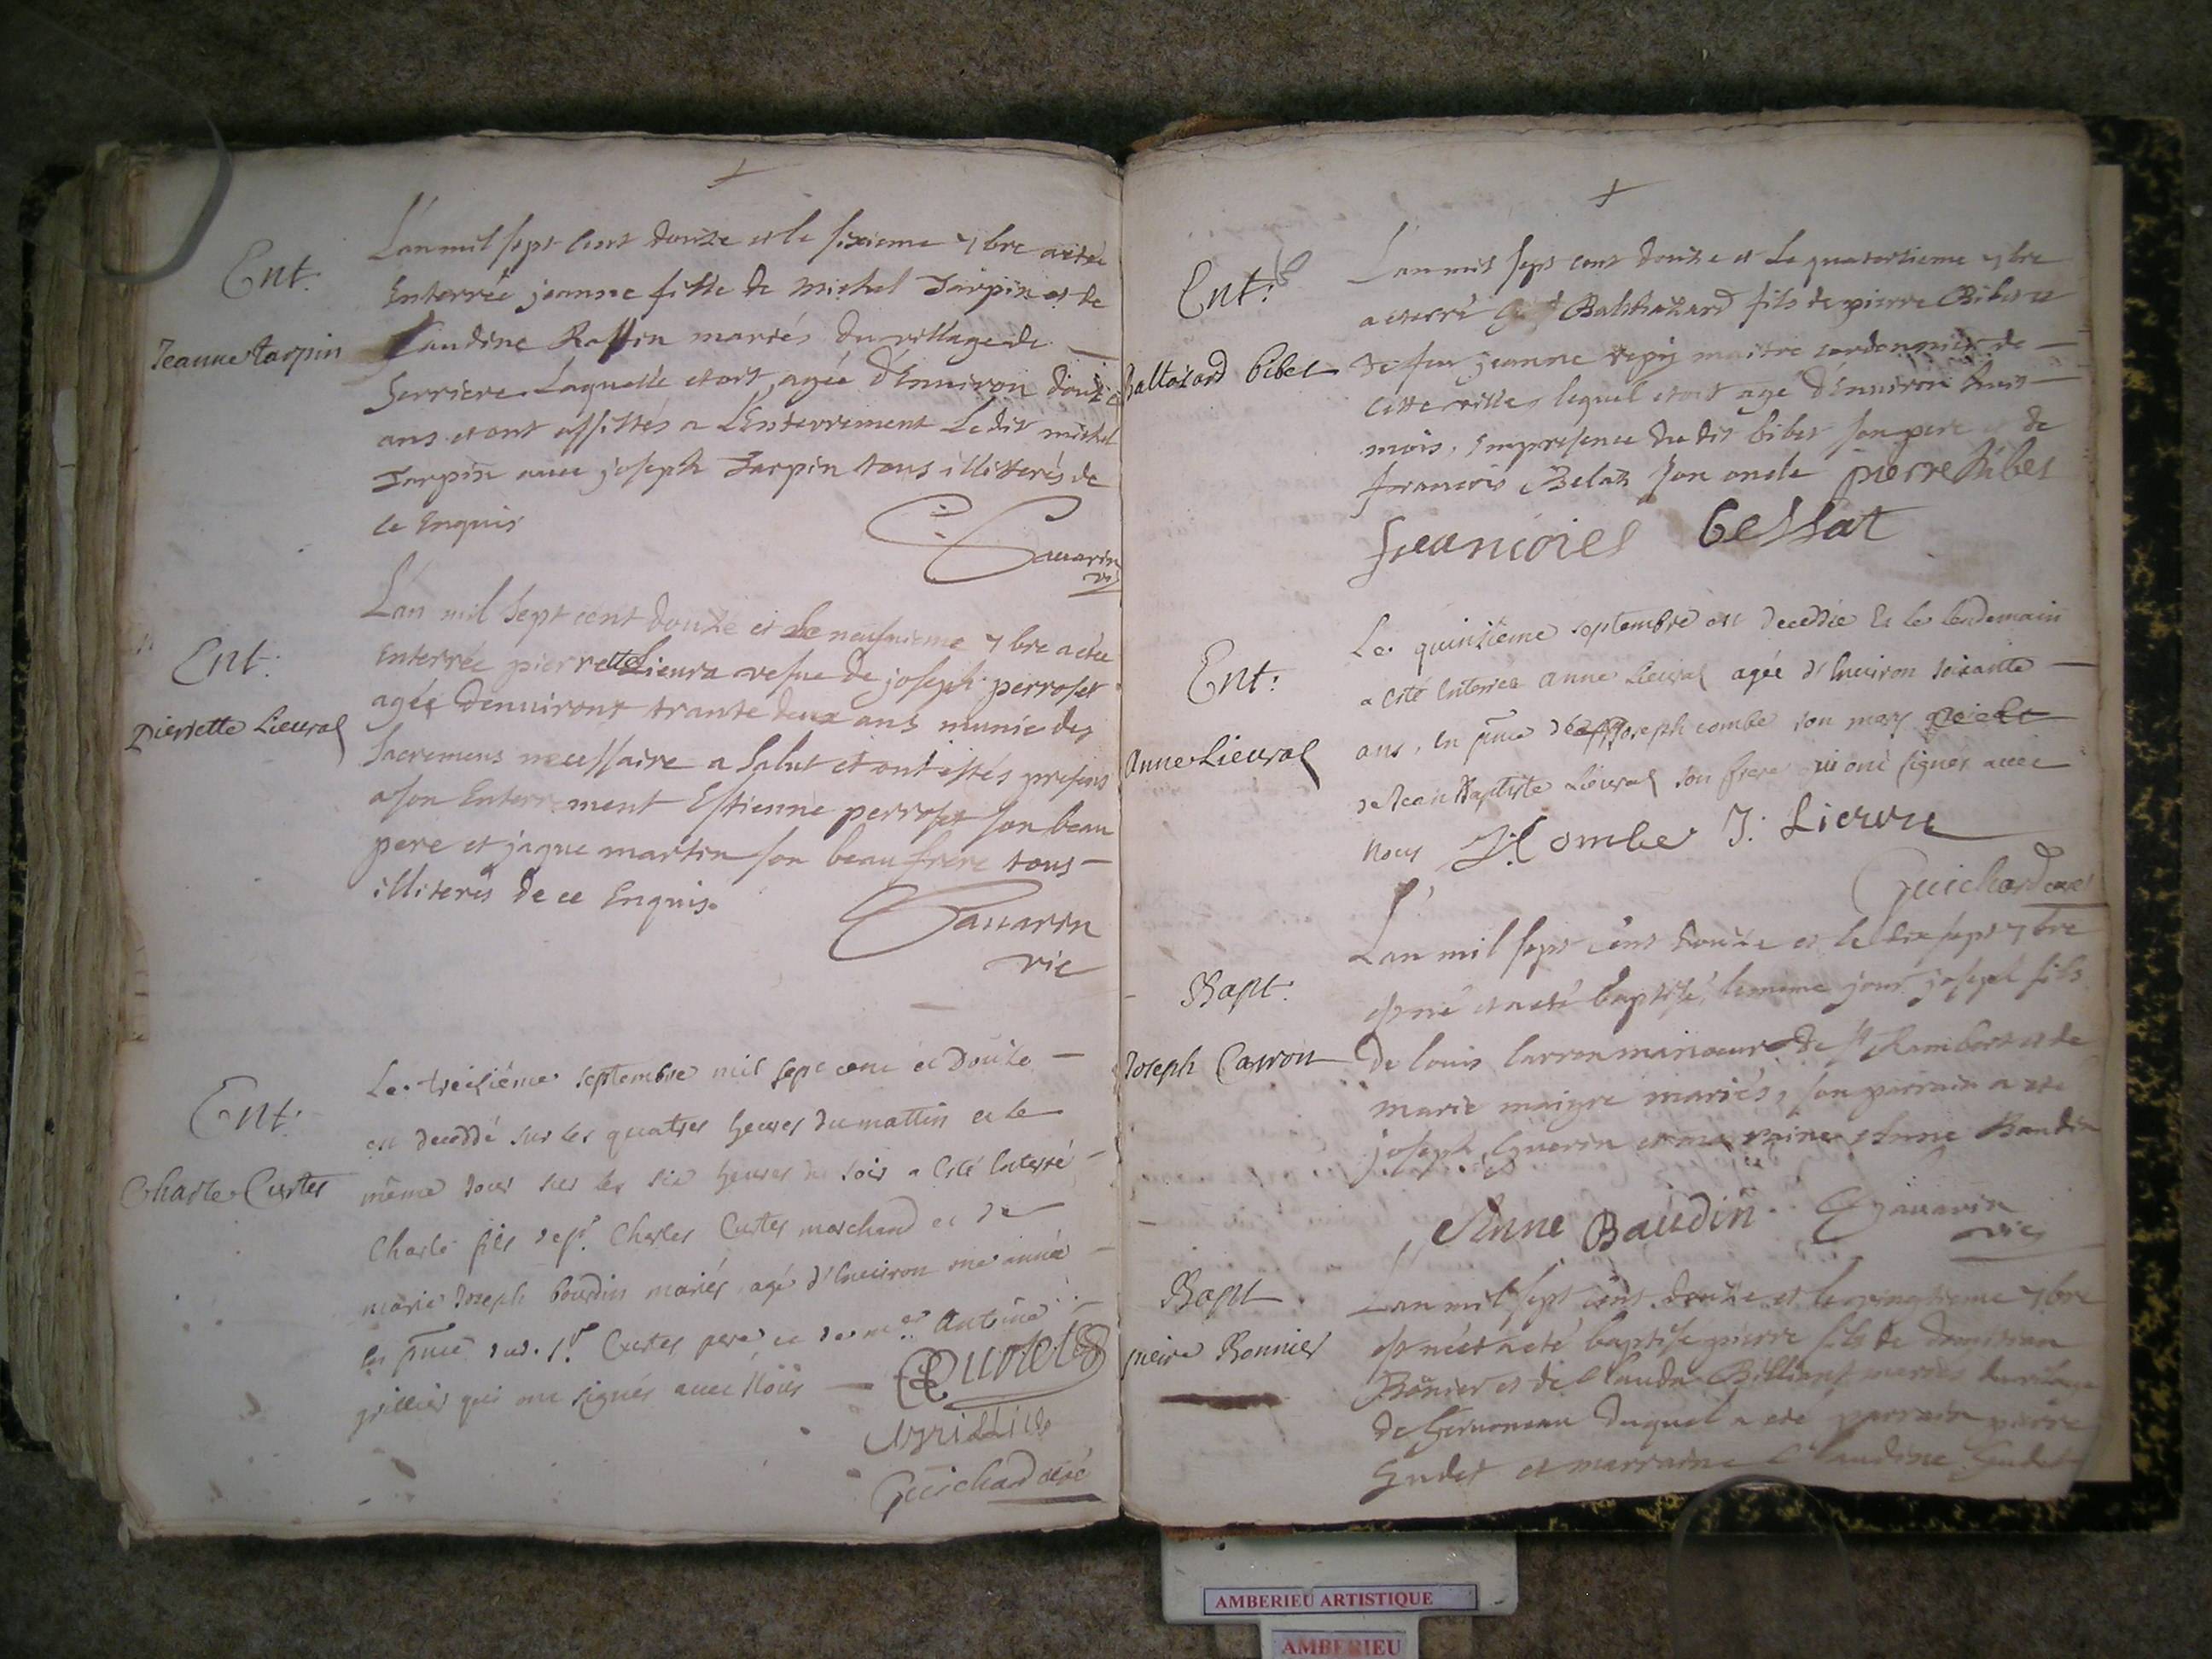 Ent:
Jeanne tarpin
L'an mil sept cent douze et le sixieme 7bre a eté
Enterrée jeanne fille de Michel Tarpin et de
Claudine Raffin mariés du village de
Serriere Laquelle etoit agée d'Enuiron douze
ans et ont assistés a L'Enterrement Le dit michel
Tarpin auec joseph Tarpin tous illitterés de
ce Enquis
Sauarin
vic
Ent:
Pierrette Lieural
L'an mil sept cent douze et le neufuieme 7bre a été
Enterrée pierrette Lieura vefue de joseph perroset
agée denuiront trante deux ans munie des
Sacremens necessaire a Salut et ont estés presens
a son Enterrement Estienne perroset son beau
pere et jaque martin son beau frere tous
illiterés de ce Enquis.
Sauarin
vic
Ent:
Charle Curtet
Le treisiéme septembre mil sept cent et Douze
est deceddé sur les quatres heures du mattin et le
même jour sur les six heures du soir a esté Enterré
Charle fils de sr. Charles Curtet marchand et de
marie Joseph bourdin mariés, agé d'Enuiron une année
en pnce dud. sr. Curtet pere, et de me. Antoine
grillier qui ont signés auec Nous
Curtet
Guichard curé
Ent:
Baltazard Bibet
L'an mil sept cent douze et Le quatorzieme 7bre
a eterré Balthazard fils de pierre Bibet et
de feu jeanne maitre cordonnier de
cette ville, lequel etoit agé d'Enuiron huit
mois, Empresence du dit bibet son pere et de
francois Belat son oncle pierre bibet
francoies besSat
Ent:
Anne Lieural
Le quinzième septembre est deceddée Et le lendemain
a esté Enterrée anne Lieural agée d'Enuiron soixante
ans, En pnce de joseph combe son mary
de Jean Baptiste Lieural son frere qui ont signés auec
nous J Combe J: Lieura
Guichard curé
Bapt:
Joseph Carron
L'an mil sept cent douze et le dix sept 7bre
est né et a eté baptisé le meme jour joseph fils
de louis Carron manoeure de st Rambert et de
marie maigre mariés, son parrain a eté
joseph Guerin et marraine Anne Baudin
Anne Baudin Sauarin
vic
Bapt
pierre Bonnier
L'an mil sept cent douze et le vingtieme 7bre
est né et a eté baptisé pierre fils de
Bonier et de Claudine Billiant mariés du village
de duquel a eté parrain pierre
Gudet et marraine Claudine Gudet
AMBERIEU ARTISTIQUE
AMBERIEU